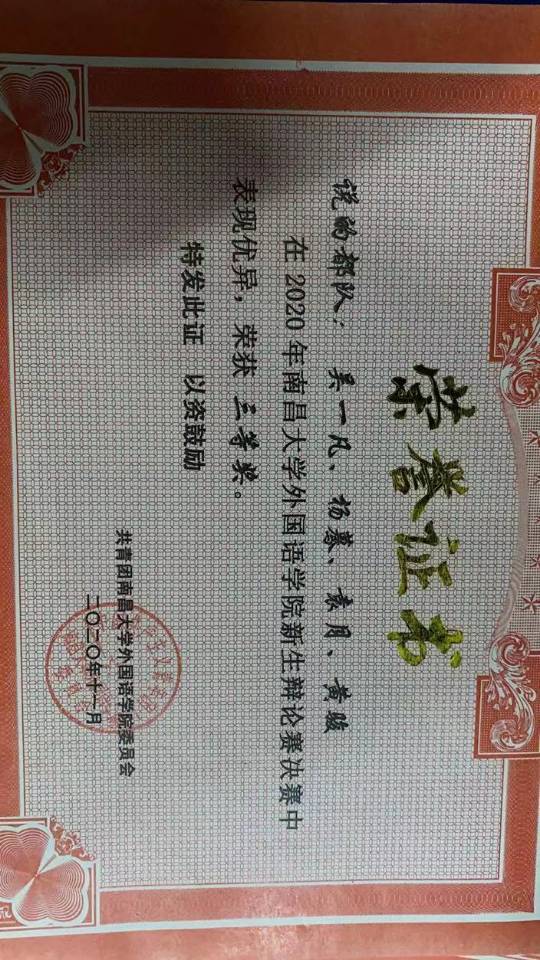 荣誉证书
锐的部队：吴一凡、杨慕、袁月、黄骏
在2020年南昌大学外国语学院新生辩论赛决赛中
表现优异，荣获三等奖。
特发此证 以资鼓励
共青团南昌大学外国语学院委员会
二〇二〇年十一月